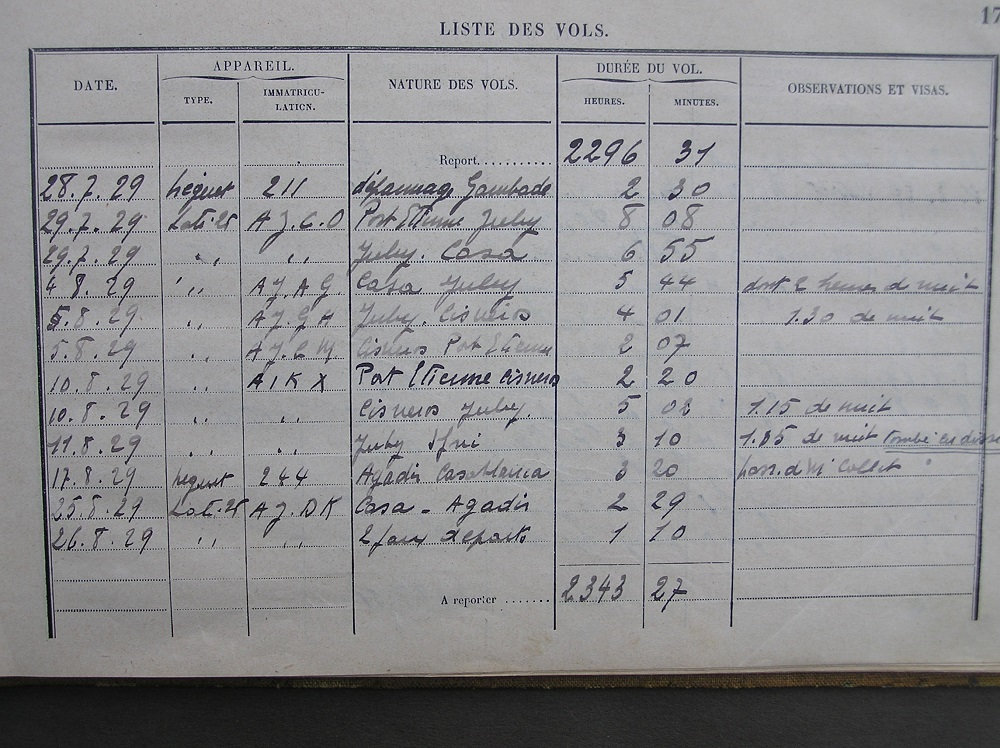 17
LISTE DES VOLS.
DATE. APPAREIL. NATURE DES VOLS. DURÉE DU VOL. OBSERVATIONS ET VISAS.
TYPE. IMMATRICU-LATION. HEURES. MINUTES.
Report........... 2296 31
28.7.29 211 dépannage Gambade 2 30
29.7.29 Laté.25 A J.C.O Port Etienne Juby 8 08
29.7.29 " " Juby. Casa 6 55
4 8.29 " A J.A G Casa Juby 5 44 dont 2 heures de nuit
5.8.29. " A J.G H Juby. Cisneros 4 01 1.30 de nuit
5.8.29 " A J.C M Cisneros Port Etienne 2 07
10.8.29 " A I K X Port Etienne Cisneros 2 20
10.8.29 " " Cisneros Juby. 5 02 1.15 de nuit
11.8.29 " " Juby Ifni 3 10 de nuit tombé en
17.8.29 244 Agadir Casablanca 3 20 Collet
25.8.29 Laté.25 A J.D K Casa - Agadir 2 29
26.8.29 " " 2 faux départs 1 10
A reporter ....... 2343 27